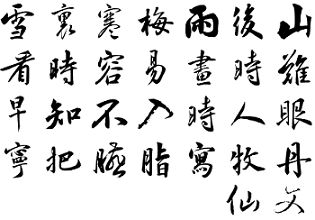 雪裏寒梅雨後山
看時容易畫時難
早知不入時人眼
寧把臙脂寫牧丹
仙文